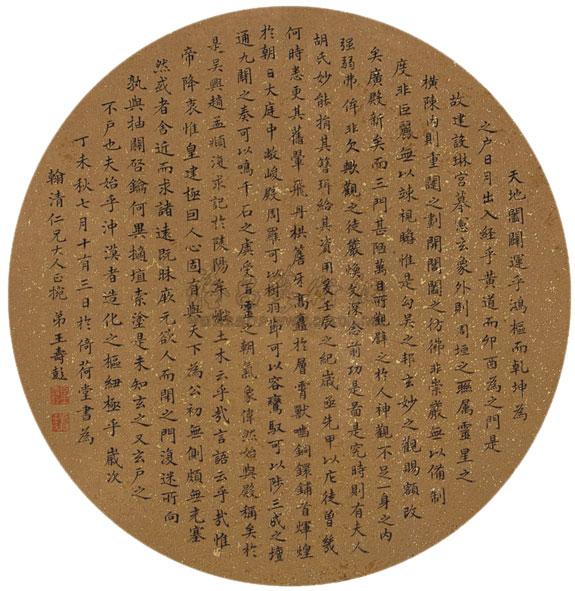 天地闔闢運乎鴻樞而乾坤為
之戶日月出入經乎黃道而卯酉為之門是
故建設琳宮摹憲玄象外則周垣之聯屬靈星之
橫陳內則重闥之劃開閶闔之彷彿非崇嚴無以備制
度非巨麗無以竦視瞻惟是勾吳之邦玄妙之觀賜額改
矣廣殿新矣而三門甚陋萬目所觀辟之於人神觀不足一身之內
强弱弗侔非欠歟觀之徒嚴煥文深念前功是啚是究時則有夫人
胡氏妙能捐其簪珥給其資用爰壬辰之紀歲亟先甲以庀徒曾幾
何時悉更其舊翬飛丹栱簷牙高矗於層霄獸嚙銅鐶鋪首輝煌
於朝日大庭中敞峻殿周羅可以樹羽節可以容鸞馭可以陟三成之壇
通九關之奏可以鳴千石之虡受百靈之朝氣象偉然始與殿稱矣於
是吳興趙孟頫復求記於陵陽牟巘土木云乎哉言語云乎哉惟
帝降衷惟皇建極因人心固有與天下為公初無側頗無充塞
然或者舍近而求諸遠既昧厥元欲入而閉之門復迷所向
孰與抽關啓鑰何異擿埴索塗是未知玄之又玄戶之
不戶也夫始乎沖漠者造化之樞紐極乎 歲次
丁未秋七月十有三日於倚荷堂書為
翰清仁兄大人正捥 弟王壽彭